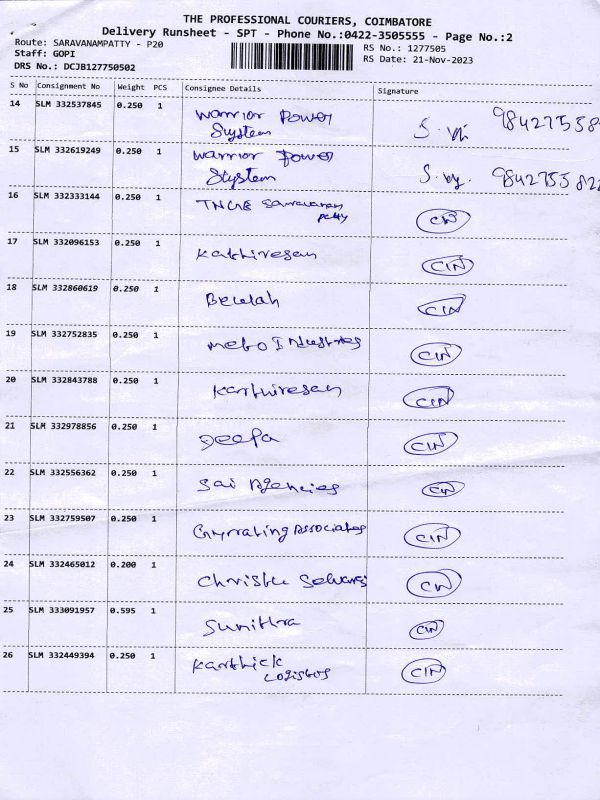 THE PROFESSIONAL COURIERS, COIMBATORE
Delivery Runsheet - SPT - Phone No.:0422-3505555 - Page No.:2
Route: SARAVANAMPATTY - P20
RS No.: 1277505
Staff: GOPI
RS Date: 21-Nov-2023
DRS No.: DCJB127750502
S No Consignment No Weight PCS Consignee Details Signature
14 SLM 332537845 0.250 1 Warrior Power
System 98427558
15 SLM 332619249 0.250 1 Warrior Power
System 9842755822
16 SLM 332333144 0.250 1 Saravanam
patty
17 SLM 332096153 0.250 1 Kathiresan CIN
18 SLM 332860619 0.250 1 Beulah CIN
19 SLM 332752835 0.250 1 Industries CIN
20 SLM 332843788 0.250 1 Karthiresan CIN
21 SLM 332978856 0.250 1 Deepa CIN
22 SLM 332556362 0.250 1 Sai Agencies CIN
23 SLM 332759507 0.250 1 Associates CIN
24 SLM 332465012 0.200 1 CIN
25 SLM 333091957 0.595 1 Sunithra CIN
26 SLM 332449394 0.250 1 Karthick CIN